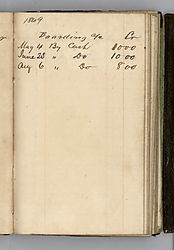 1849
Boarding a/c Cr
May 4 By Cash 10 00
June 23 " Do 10 00
Aug 6 " Do 8 00